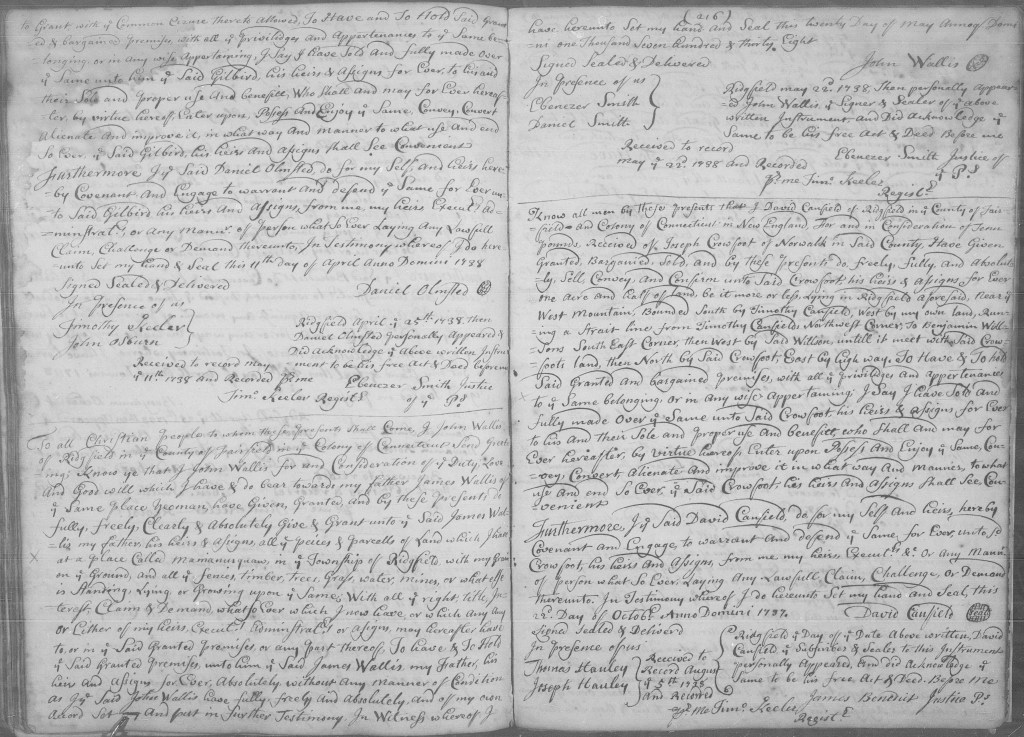 to Grant, with y Common Usure thereto allowed, To Have and To Hold Said Grant
ed & bargained Premises, with all y Priviledges and Appertenances to y Same be-
longing, or in Any wise Appertaining, I Say I have Sold And fully made over
y Same unto him y Said Gilbird, his heirs & Assigns for Ever, to his and
their Sole and Proper use And benefitt, Who Shall And may for Ever hereaf-
ter, by virtue hereof, Enter upon, Possess And Enjoy y Same, Convey, Convert
Alienate And improve it, in what way And Manner to what use And end
So Ever, y Said Gilbird, his heirs And Assigns Shall See Convenient
Furthermore I y Said Daniel Olmsted, do for my Self And Heirs here-
by Covenant And Engage to warrant And defend y Same for Ever un-
to Said Gilbird his heirs And Assigns, from me my heirs Execut.s ad-
=minstrat.s or Any Mann.r of Person what So Ever Laying Any Lawfull
Claim, Challenge or Demand thereunto, In Testimony whereof I do here
unto Set my hand & Seal this 11th day of April Anno Domini 1738
Signed Sealed & Delivered
Daniel Olmsted
In Presence of us
Timothy Keeler
John Osburn
Ridgfield April y 25th 1738, then
Daniel Olmsted Personally Appeared &
Did Acknowledge y Above written Instru
ment to be his free Act & Deed before me
Ebenezer Smith Justice
of y Ps
Received to record may
y 11th 1738 and Recorded P me
Timo. Keeler Registr
To all Christian People to whom these Presents Shall Come, I John Wallis,
of Ridgfield in y County of Fairfield in y Colony of Connecticut Send Greet-
ing; Know ye that I John Wallis for and Consideration of y Duty, Love
And Good will which I have & do bear towards my Father James Wallis of
y Same Place, yeoman, have Given, Granted, and by these Presents do
fully, freely, Clearly & Absolutely Give & Grant unto y Said James Wal-
lis my Father, his heirs & Assigns, all y Peices & Parcells of Land which I have
at a Place Called Mamanusquaw, in y Township of Ridgfield, with my Grain
on y Ground, and all y fences, timber, trees, Grass, water, mines, or what else
is Standing Lying or Growing upon y Same, With all y right, title, In-
terest, Claim & Demand, what So Ever which I now have, or which Any Any
Or Either of my heirs, Execut.s adminstrat.s or Assigns, may hereafter have
to, or in y Said Granted Premises or any Part thereof, To Have & To Hold
y Said Granted Premises, unto him y Said James Wallis my Father, his
heirs And Assigns for Ever, Absolutely without Any Manner of Condition
as I y Said John Wallis have fully, freely and Absolutely, and of my own
Acord Set And put in Further Testimony, In Witness whereof I
(216)
have hereunto Set my hand And Seal this twenty Day of May Annoq Dom
ni one Thousand Seven Hundred & Thirty Eight
Signed Sealed & Delivered
John Wallis
In Presence of us
Ebenezer Smith
Daniel Smith
Ridgfield may 22d 1738, Then personally Appear
ed John Wallis, y Signer & Sealer of y above
written Instrument, And Did Acknowledge y
Same to be his free Act & Deed Before me
Ebenezer Smith Justice of
y Ps
Received to record
may y 22d 1738 and Recorded
Pr me Timo. Keeler
Registr
Know all men by these Presents that I David Canfield of Ridgfield in y County of Fair-
=field And Colony of Connecticut in New England, For and in Consideration of Tenn
Pounds, Received of Joseph Crowfoot of Norwalk in Said County, Have Given
Granted, Bargained, Sold, and by these Presents do, freely, Fully, and Absolut-
ly, Sell, Convey, and Confirm unto Said Crowfoot his heirs & Assigns for Ever
one Acre and half of Land, be it more or less, Lying in Ridgfield Aforesaid, Near y
West Mountain, Bounded South by Timothy Canfield, West by my own land, Run-
ing a Strait line from Timothy Canfields Northwest Corner, To Benjamin Will-
Sons South East Corner, then West by Said Willson, untill it meet with Said Crow-
foots land, then North by Said Crowfoot East by high way. To Have & To hold
Said Granted And bargained Premises, with all y Priviledges And Appertenances
to y Same belonging or in Any wise Appertaining I Say I have Sold And
Fully made Over y Same unto Said Crowfoot his heirs & Assigns for Ever
to his And Their Sole and Proper use And benefitt, who Shall And may for
Ever hereafter, by virtue hereof, Enter upon Possess And Enjoy y Same, Con-
vey, Convert Alienate And improve it in what way And Manner, to what
use And end So Ever, y Said Crowfoot, his heirs And Assigns Shall See Con-
venient
Furthermore, I y Said David Canfield, do for my Self And heirs, hereby
Covenant And Engage, to warrant And defend y Same, for Ever, unto Sd
Crowfoot, his heirs And Assigns, from me my heirs, Execut.s &c. Or Any Mann.r
of Person what So Ever, Laying Any Lawfull Claim, Challenge, or Demand
thereunto. In Testimony whereof I do hereunto Set my hand And Seal, this
22d. Day of Octobr. Anno Domini 1737.
David Canfield
Seal
Signed Sealed & Deliverd
In Presence of us
Thomas Hauley
Joseph Hauley
Received to
Record August
y 4th 1738
And Recorded
P Me Timo. Keeler
Registr
Ridgfield y Day off y Date Above written, David
Canfield y Subscriber & Sealer to this Instrument
Personally Appeared, And did Acknowledge y
Same to be his free Act & Deed. Before Me
James Benedict Justice Ps.